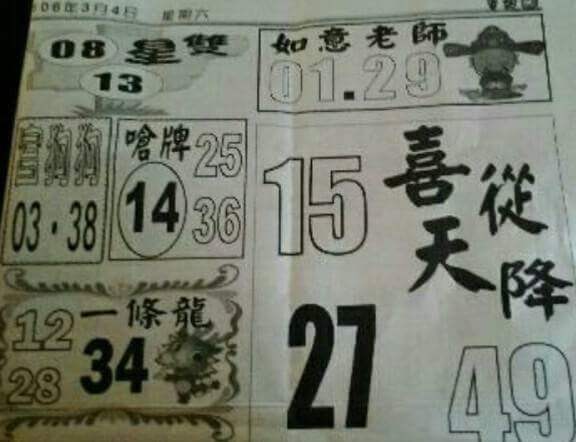 106年3月4日 星期六
08 雙星
13
如意老師
01.29
狗狗
03.38
嗆牌
14
25
36
喜從天降
15
27
49
一條龍
12
34
28